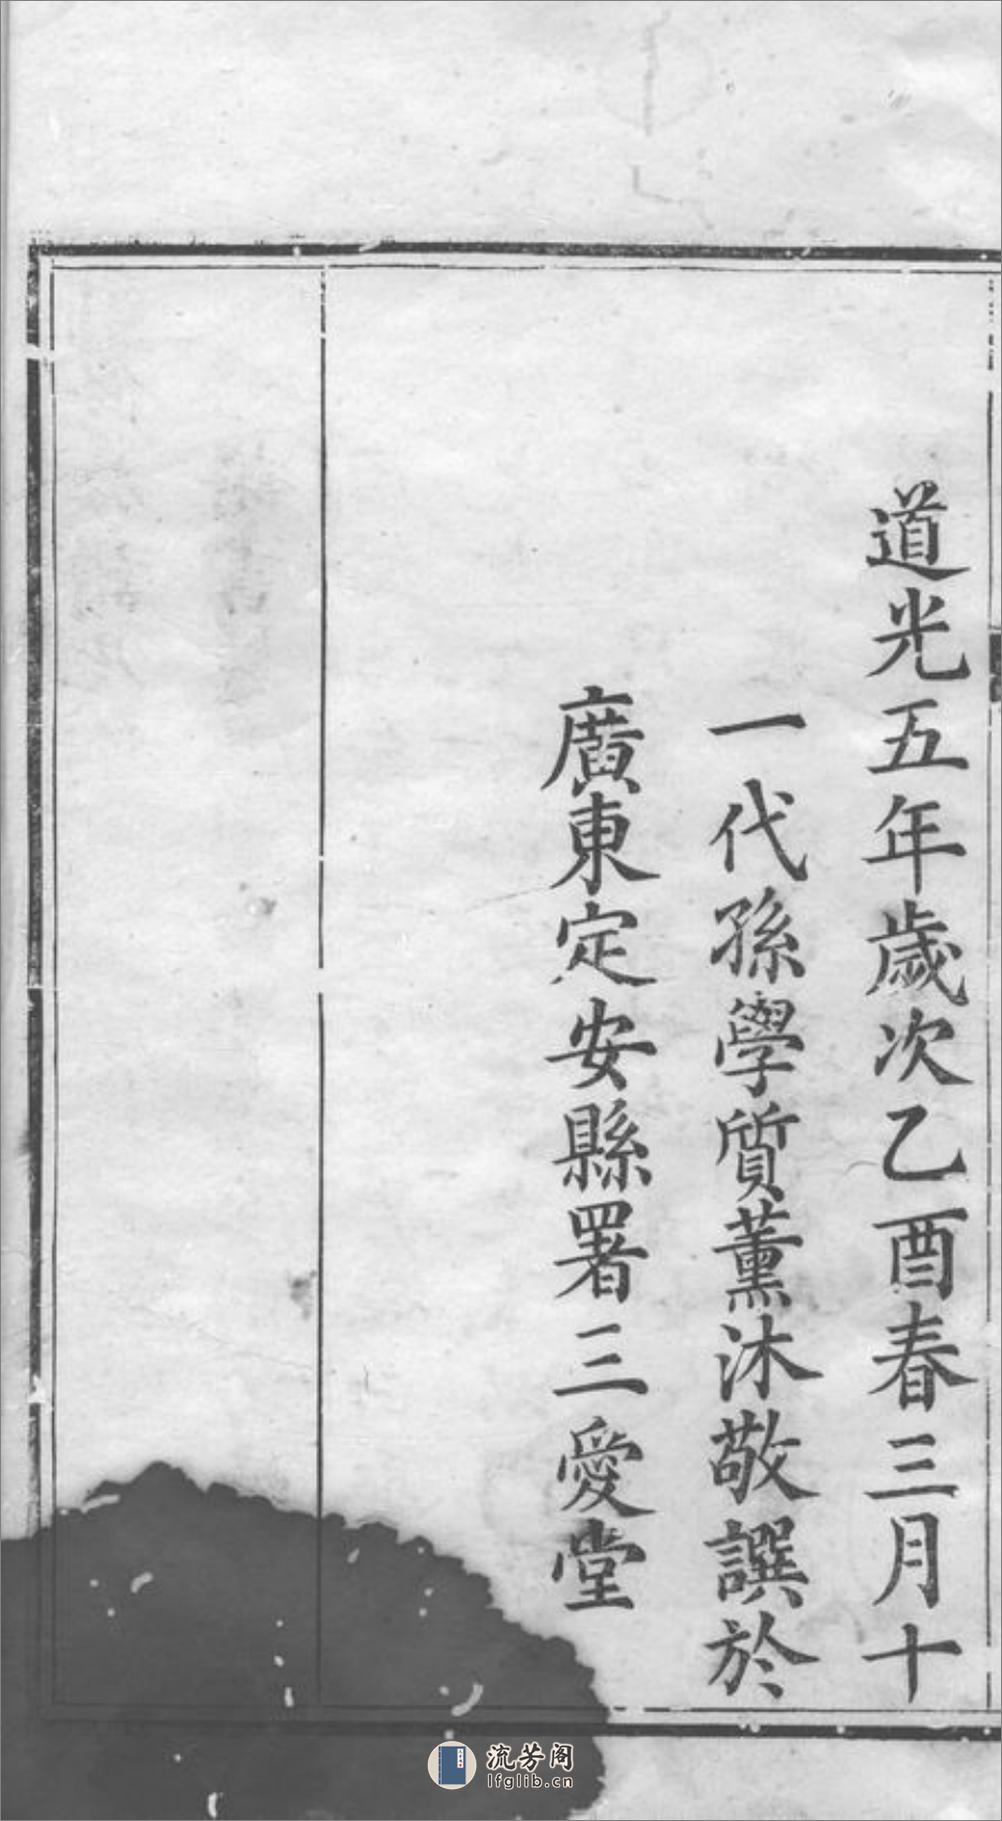 道光五年歲次乙酉春三月十
一代孫學質薰沐敬譔於
廣東定安縣署三愛堂
流芳阁
lfglib.cn